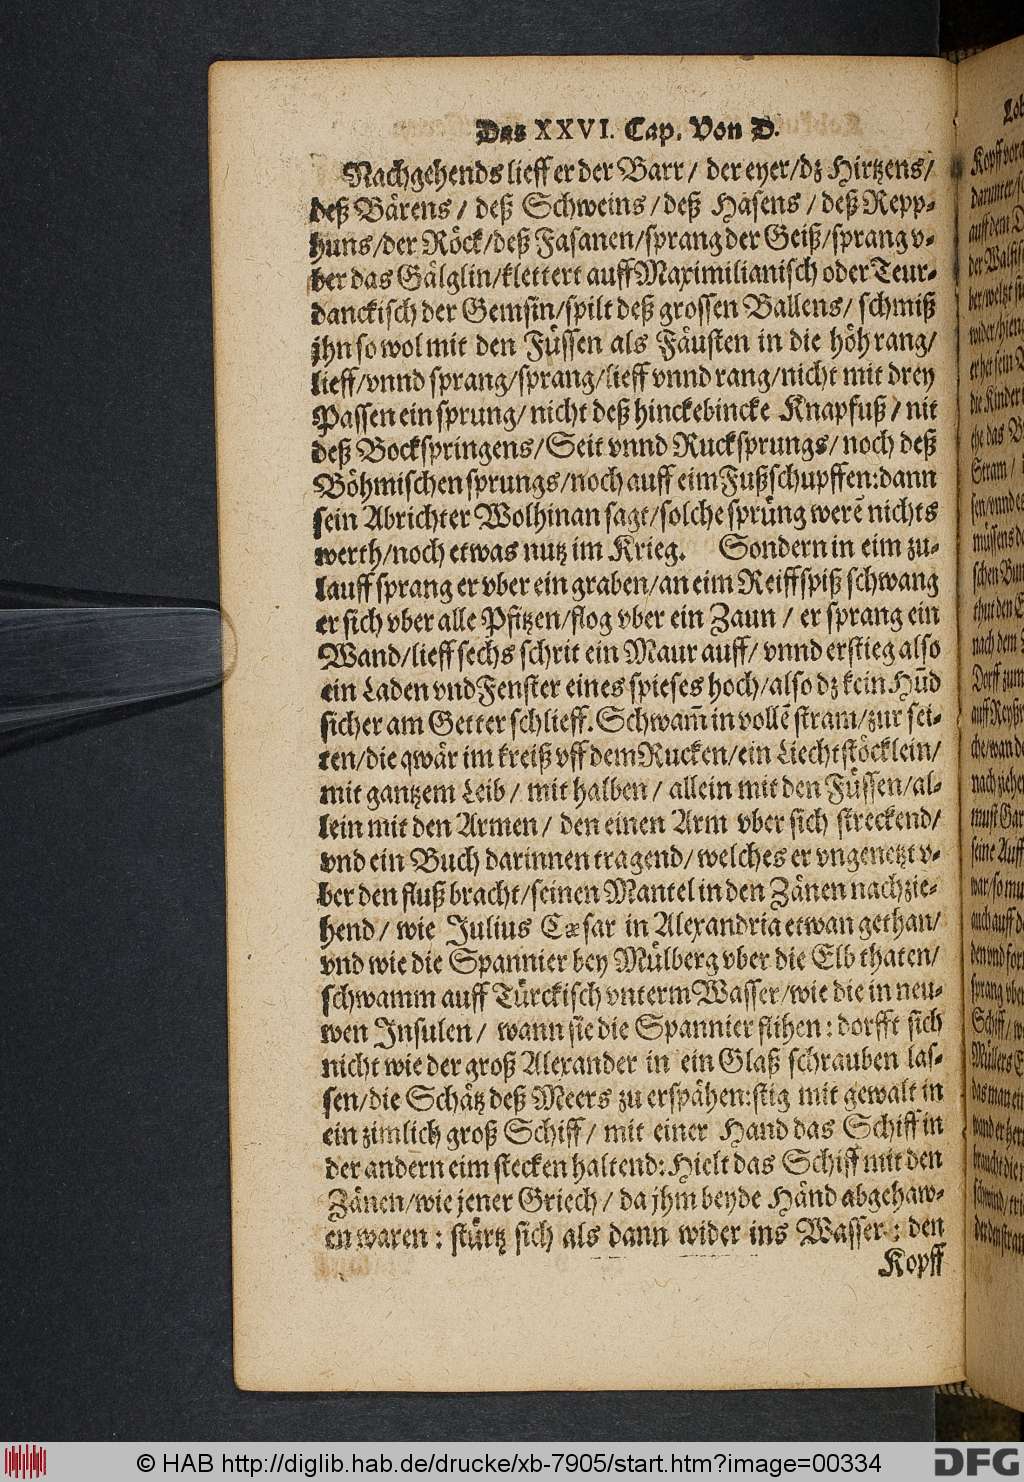 Das XXVI. Cap. Von D.
Nachgehends lieff er der Barr / der eyer/dz Hirtzens/
deß Bärens / deß Schweins / deß Hasens / deß Repp-
huns/der Röck/deß Fasanen/sprang der Geiß/sprang v-
ber das Gälglin/klettert auff Maximilianisch oder Teur-
danckisch der Gemsin/spilt deß grossen Ballens/ schmiß
jhn so wol mit den Füssen als Fäusten in die höh rang/
lieff/vnnd sprang/sprang/lieff vnnd rang/nicht mit drey
Passen ein sprung/ nicht deß hinckebincke Knapfuß / nit
deß Bockspringens/Seit vnnd Rucksprungs/ noch deß
Böhmischen sprungs/noch auff eim Fußschupffen:dann
sein Abrichter Wolhinan sagt/solche sprüng werẽ nichts
werth/noch etwas nutz im Krieg. Sondern in eim zu-
lauff sprang er vber ein graben/an eim Reiffspiß schwang
er sich vber alle Pfitzen/flog vber ein Zaun / er sprang ein
Wand/lieff sechs schrit ein Maur auff/ vnnd erstieg also
ein Laden vnd Fenster eines spieses hoch/also dz kein Hũd
sicher am Getter schlieff. Schwam̃ in vollẽ stram/zur sei-
ten/die qwär im kreiß vff dem Rucken/ein Liechtstöcklein/
mit gantzem Leib / mit halben / allein mit den Füssen/al-
lein mit den Armen / den einen Arm vber sich streckend/
vnd ein Buch darinnen tragend/ welches er vngenetzt v-
ber den fluß bracht/seinen Mantel in den Zänen nachzie-
hend / wie Julius Cæsar in Alexandria etwan gethan/
vnd wie die Spannier bey Mülberg vber die Elb thaten/
schwamm auff Türckisch vnterm Wasser/wie die in neu-
wen Insulen / wann sie die Spannier flihen: dorfft sich
nicht wie der groß Alexander in ein Glaß schrauben las-
sen/die Schätz deß Meers zu erspähen:stig mit gewalt in
ein zimlich groß Schiff / mit einer Hand das Schiff in
der andern eim stecken haltend: Hielt das Schiff mit den
Zänen/wie jener Griech / da jhm beyde Händ abgehaw-
en waren : stürtz sich als dann wider ins Wasser : den
Kopff
© HAB http://diglib.hab.de/drucke/xb-7905/start.htm?image=00334
DFG